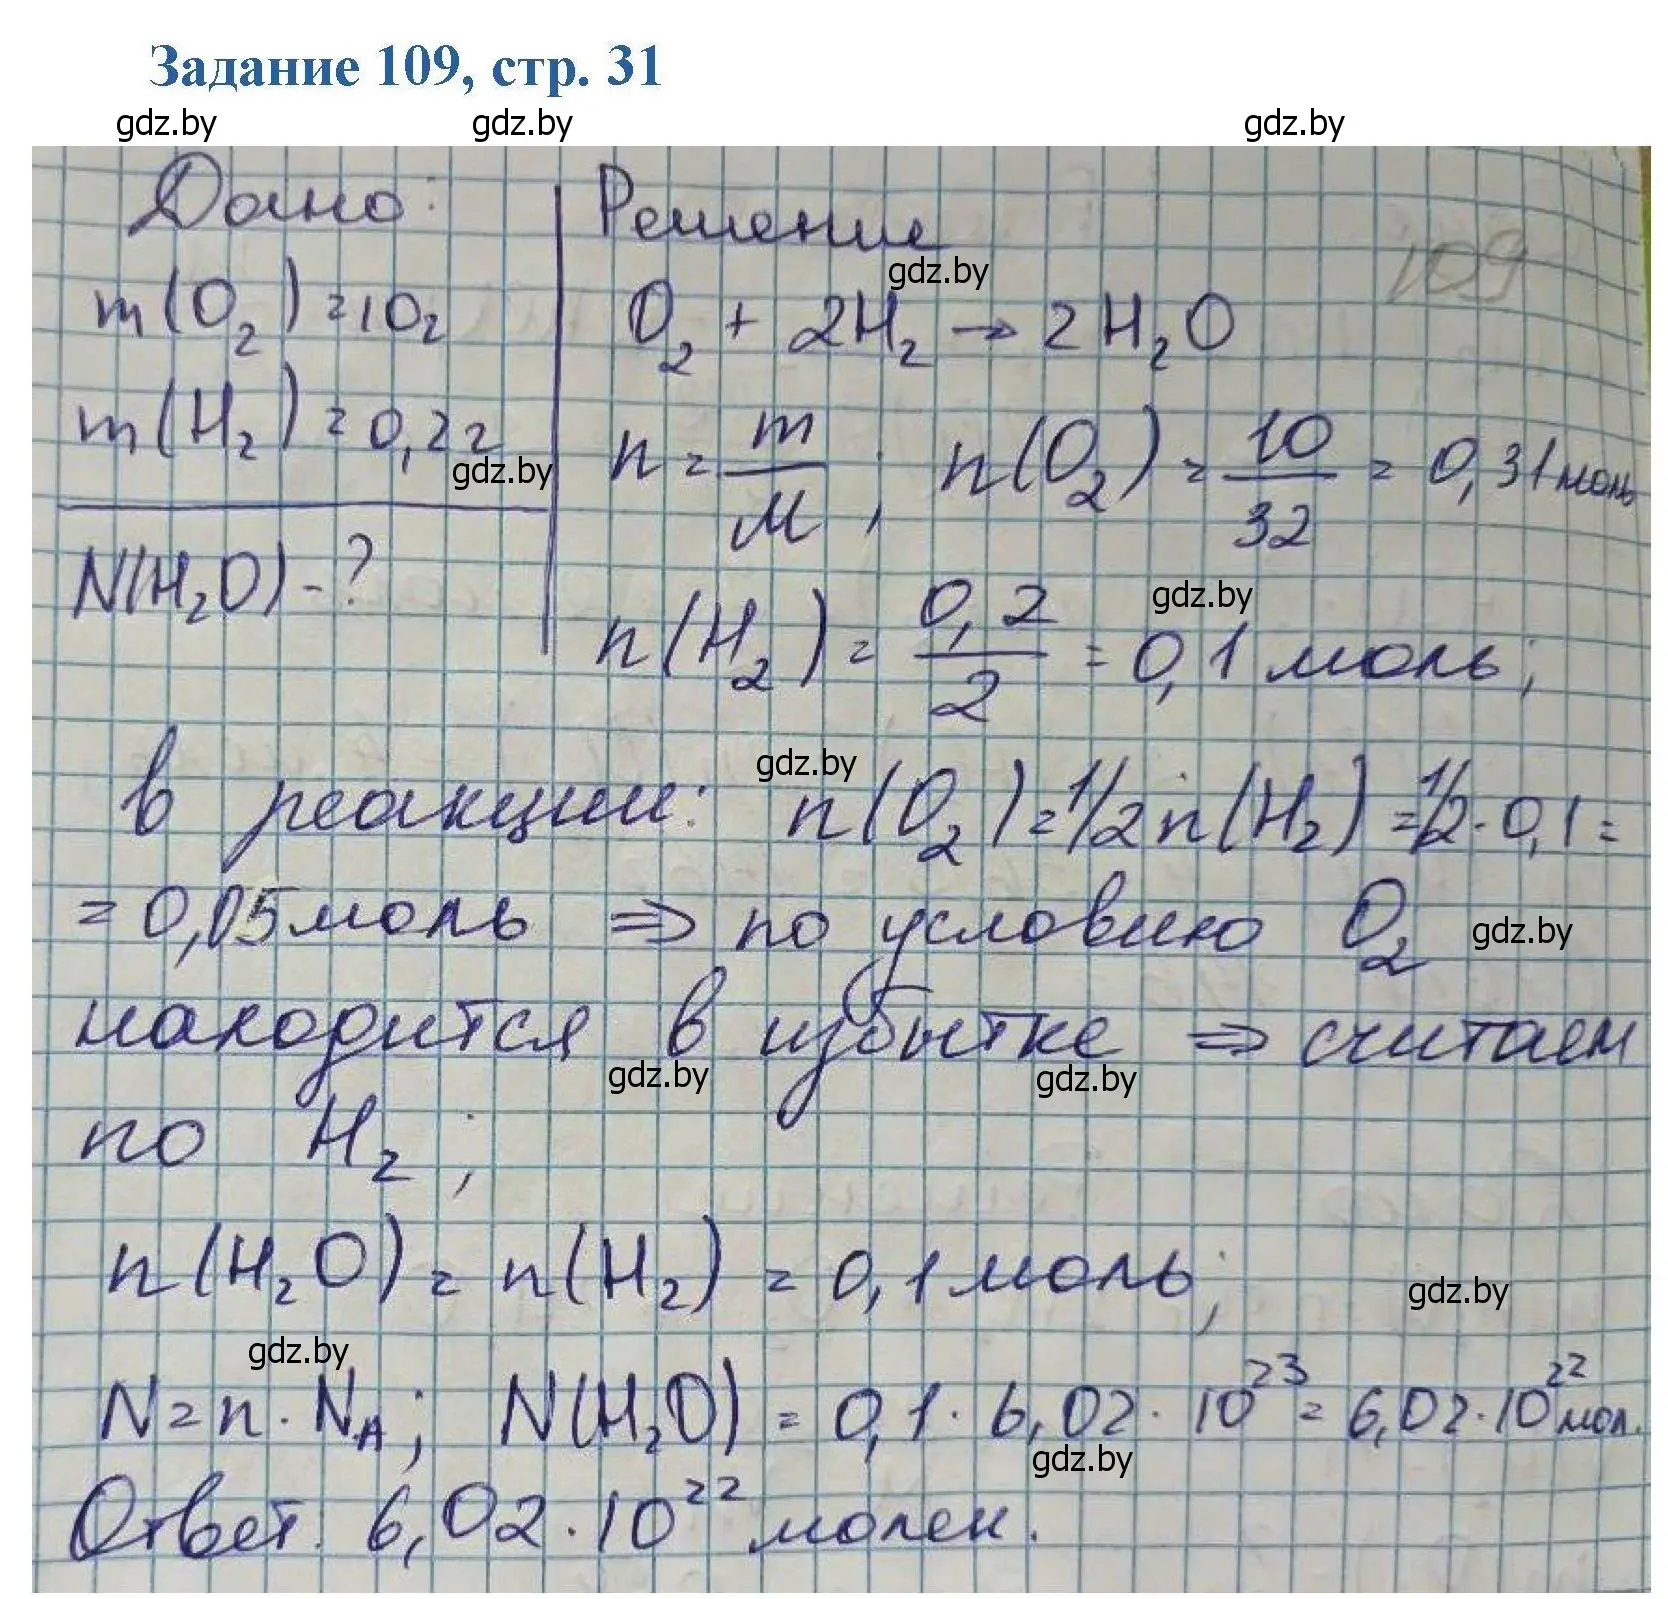 Задание 109, стр. 31
gdz.by gdz.by gdz.by
Дано: Решение 109
gdz.by
m(O₂)=10г O₂ + 2H₂ → 2H₂O
m(H₂)=0,2г n=m/M; n(O₂)=10/32=0,31моль
gdz.by
N(H₂O)-?
gdz.by
n(H₂)=0,2/2=0,1 моль;
gdz.by
в реакции: n(O₂)=1/2n(H₂)=1/2·0,1=
=0,05моль ⇒ по условию O₂
gdz.by
находится в избытке ⇒ считаем
gdz.by gdz.by
по H₂;
n(H₂O)=n(H₂)=0,1 моль;
gdz.by
gdz.by
N=n·N_A; N(H₂O)=0,1·6,02·10²³=6,02·10²²мол.
gdz.by
Ответ: 6,02·10²² молек.